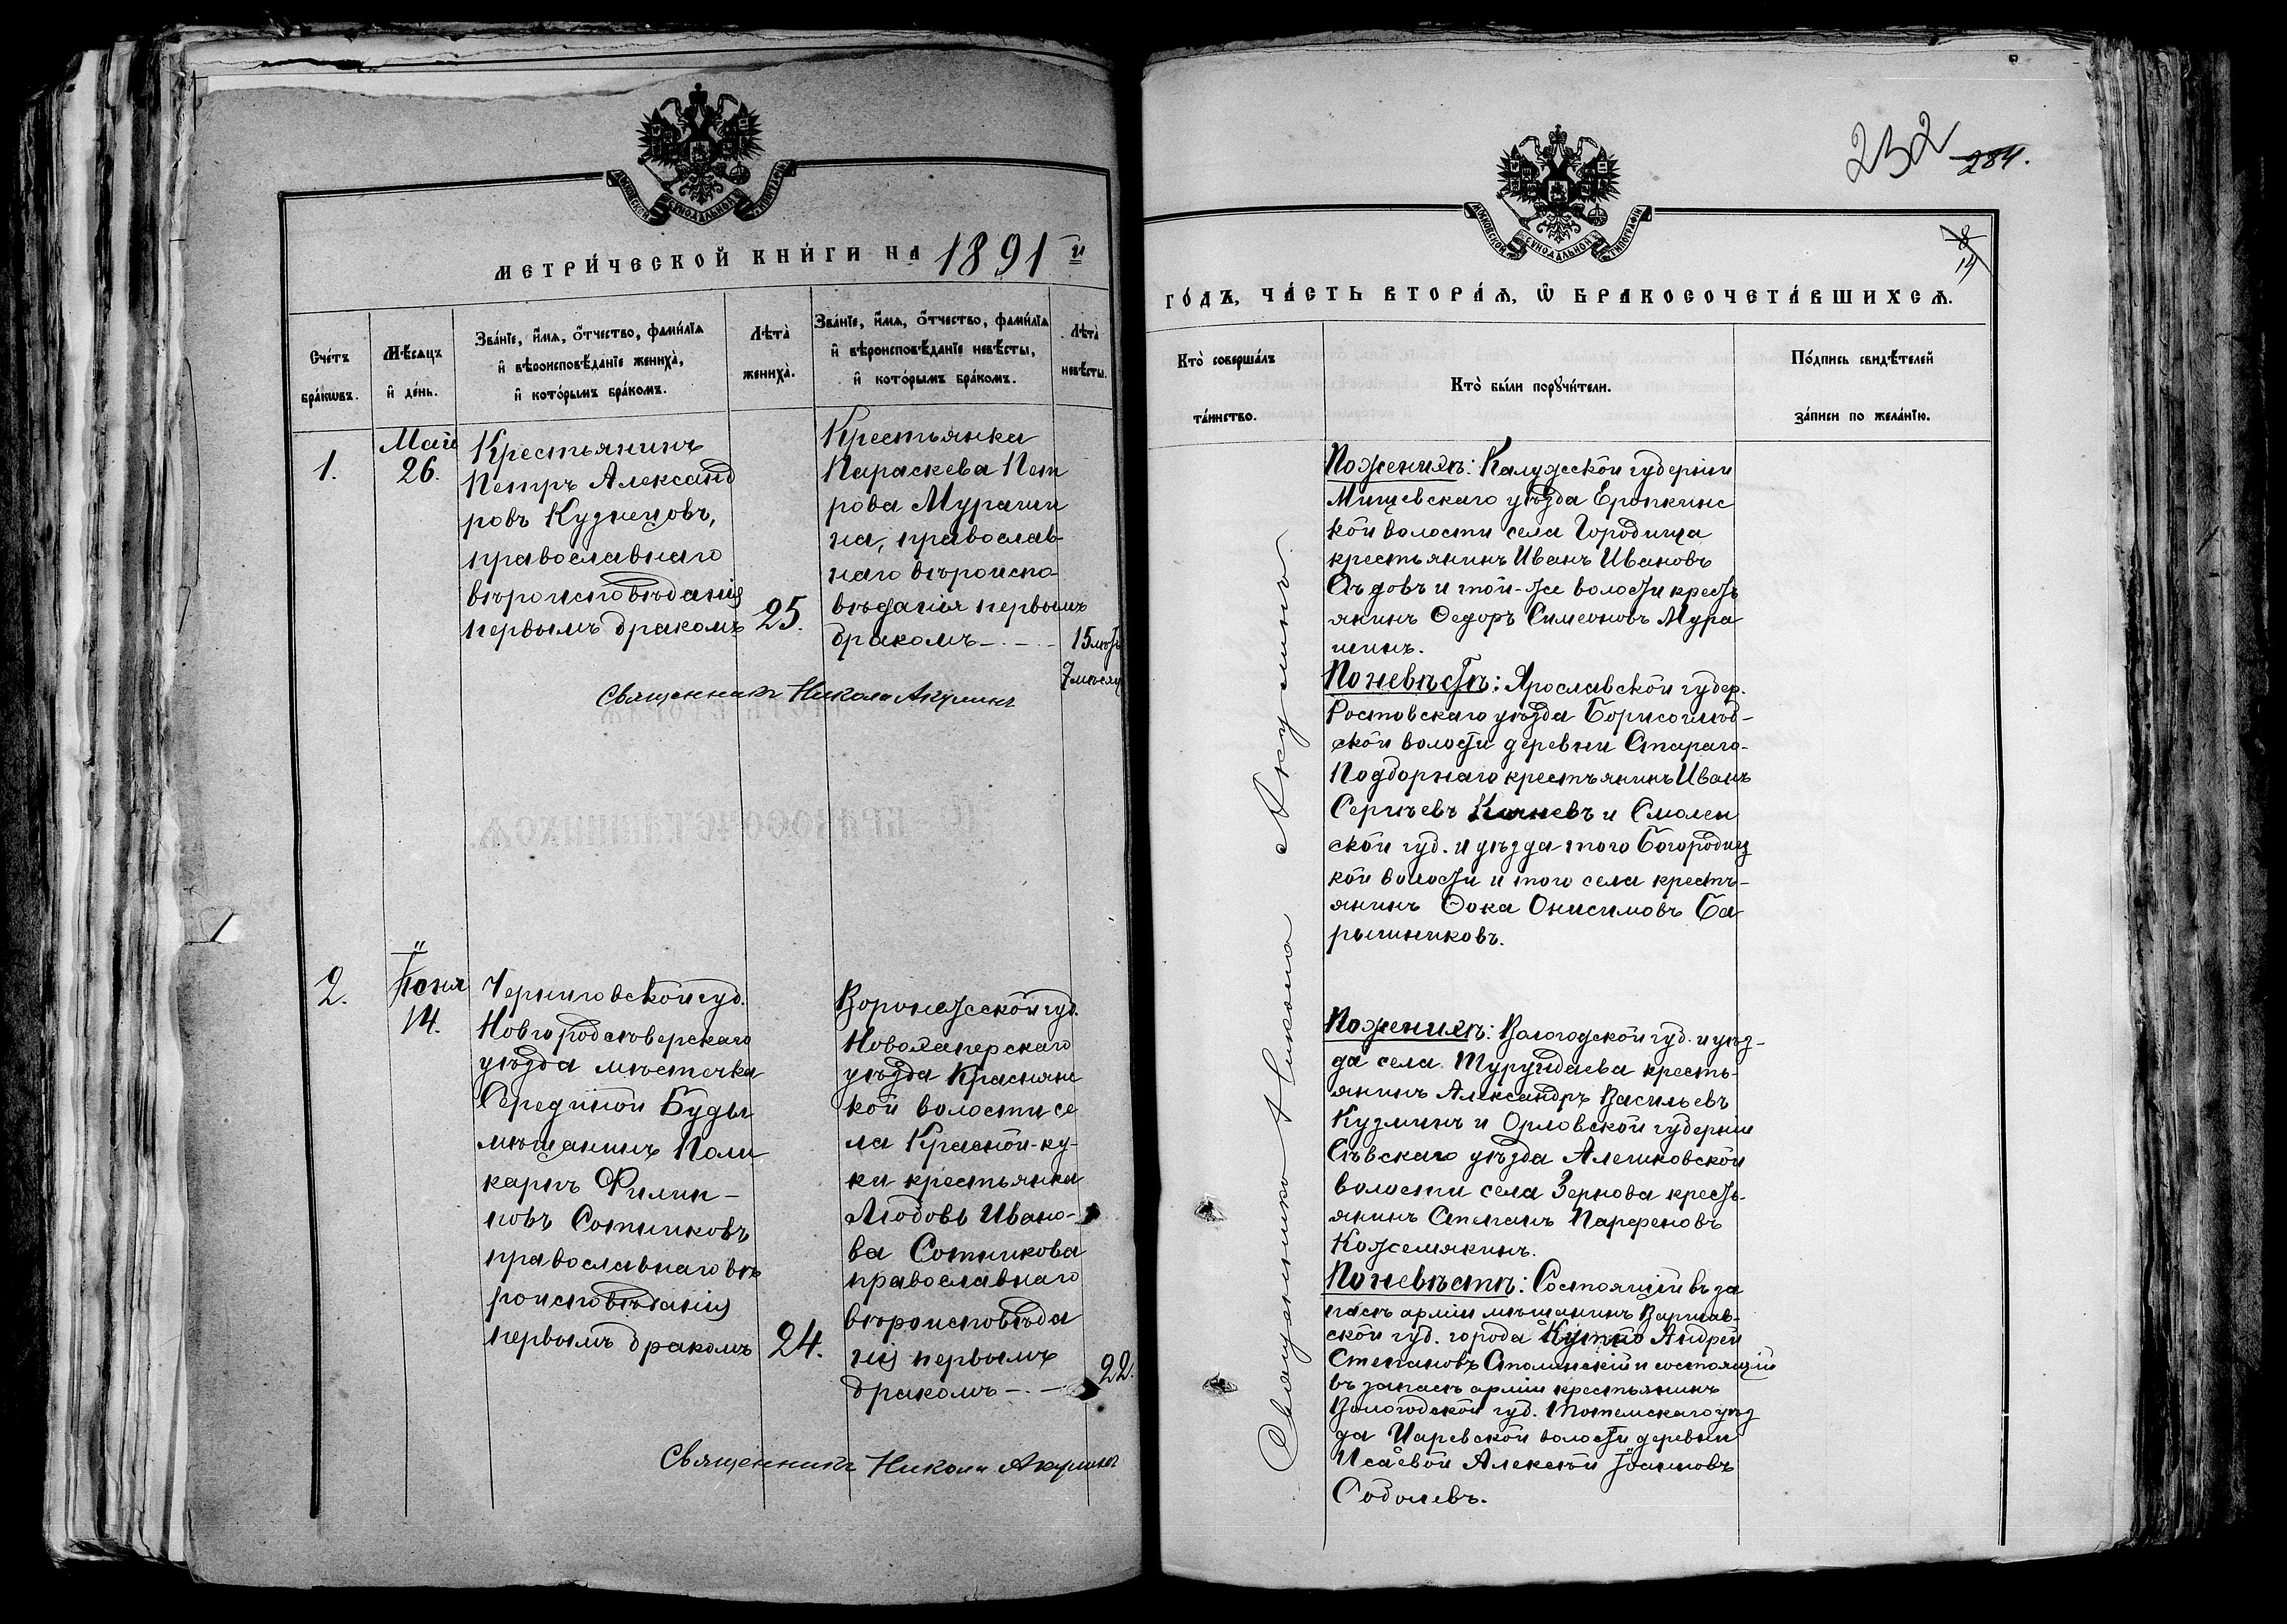 МОСКОВСКОЙ СѴНОДАЛЬНОЙ ТИПОГРАФІИ
МЕТРИ́ЧЕСКОЙ КНИ́ГИ НА 1891 й
Сче́тъ бра́кѡвъ.
Мѣ́сяцъ и҆ де́нь.
Зва́нїе, и҆́мѧ, ѻ҆́тчество, фами́лїѧ
и҆ вѣроисповѣ́данїе жениха̀,
и҆ кото́рымъ бра́комъ.
Лѣ́та̀ жениха̀.
Зва́нїе, и҆́мѧ, ѻ҆́тчество, фами́лїѧ
и҆ вѣроисповѣ́данїе невѣ́сты,
и҆ кото́рымъ бра́комъ.
Лѣ́та̀ невѣ́сты.
1.
Маія
26.
Крестьянинъ
Петръ Александ
ровъ Кузнецовъ,
православнаго
вѣроисповѣданія
первымъ бракомъ
25.
Крестьянка
Параскева Пет
рова Мураши
на, православ-
наго вѣроиспо-
вѣданія первымъ
бракомъ
15 лѣтъ
7 мѣсяц
Священникъ Никола Акулинъ
2.
Іюня
14.
Черниговской губ.
Новгородсѣверскаго
уѣзда мѣстечка
Середіной Буды
мѣщанинъ Поли
карпъ Филип-
повъ Сотниковъ
православнаго вѣ
роисповѣданія
первымъ бракомъ
24.
Воронежской губ.
Новохаперскаго
уѣзда Краснян
кой волости се
ла Красной-ку-
ки крестьянка
Любовь Ивано-
ва Сотникова
православнаго
вѣроисповѣда
нія первымъ
бракомъ
22.
Священникъ Никола Акулинъ
232
284.
МОСКОВСКОЙ СѴНОДАЛЬНОЙ ТИПОГРАФІИ
ГО́ДЪ, ЧА́СТЬ ВТОРА́Ѧ, Ѽ БРАКОСОЧЕТА́ВШИХСѦ.
Кто̀ соверша́лъ
та́инство.
Кто̀ бы́ли порꙋчи́тели.
По́дпись свидѣ́телей
за́писи по жела́нїю.
Священникъ Никола Акулинъ
По женихѣ: Калужской губерніи
Мищевскаго уѣзда Еропкинс
кой волости села Городища
крестьянинъ Иванъ Ивановъ
Сѣдовъ и той-же волости кресть
янинъ Ѳедоръ Симеоновъ Мура
шинъ.
По невѣстѣ: Ярославской губер.
Ростовскаго уѣзда Борисоглѣб-
ской волости деревни Стараго-
Подборнаго крестьянинъ Иванъ
Сергѣевъ и Смолен
ской губ. и уѣзда того Богородиц
кой волости и того села кресть-
янинъ Ѳока Онисимовъ Ба
рышниковъ.
По женихѣ: Вологодской губ. и уѣз-
да села Турундаева кресть-
янинъ Александръ Васильевъ
Кузминъ и Орловской губерніи
Сѣвскаго уѣзда Алешковской
волости села Зернова кресть-
янинъ Степанъ Парфеновъ
Кожемякинъ.
По невѣстѣ: Состоящій въ за
пасѣ арміи мѣщанинъ Варшав-
ской губ. города Кутно Андрей
Степановъ Столинскій и состоящій
въ запасѣ арміи крестьянинъ
Вологодской губ. Тотемскаго уѣз
да Царевской волости деревни
Исаевой Алексѣй Іоанновъ
Соболевъ.